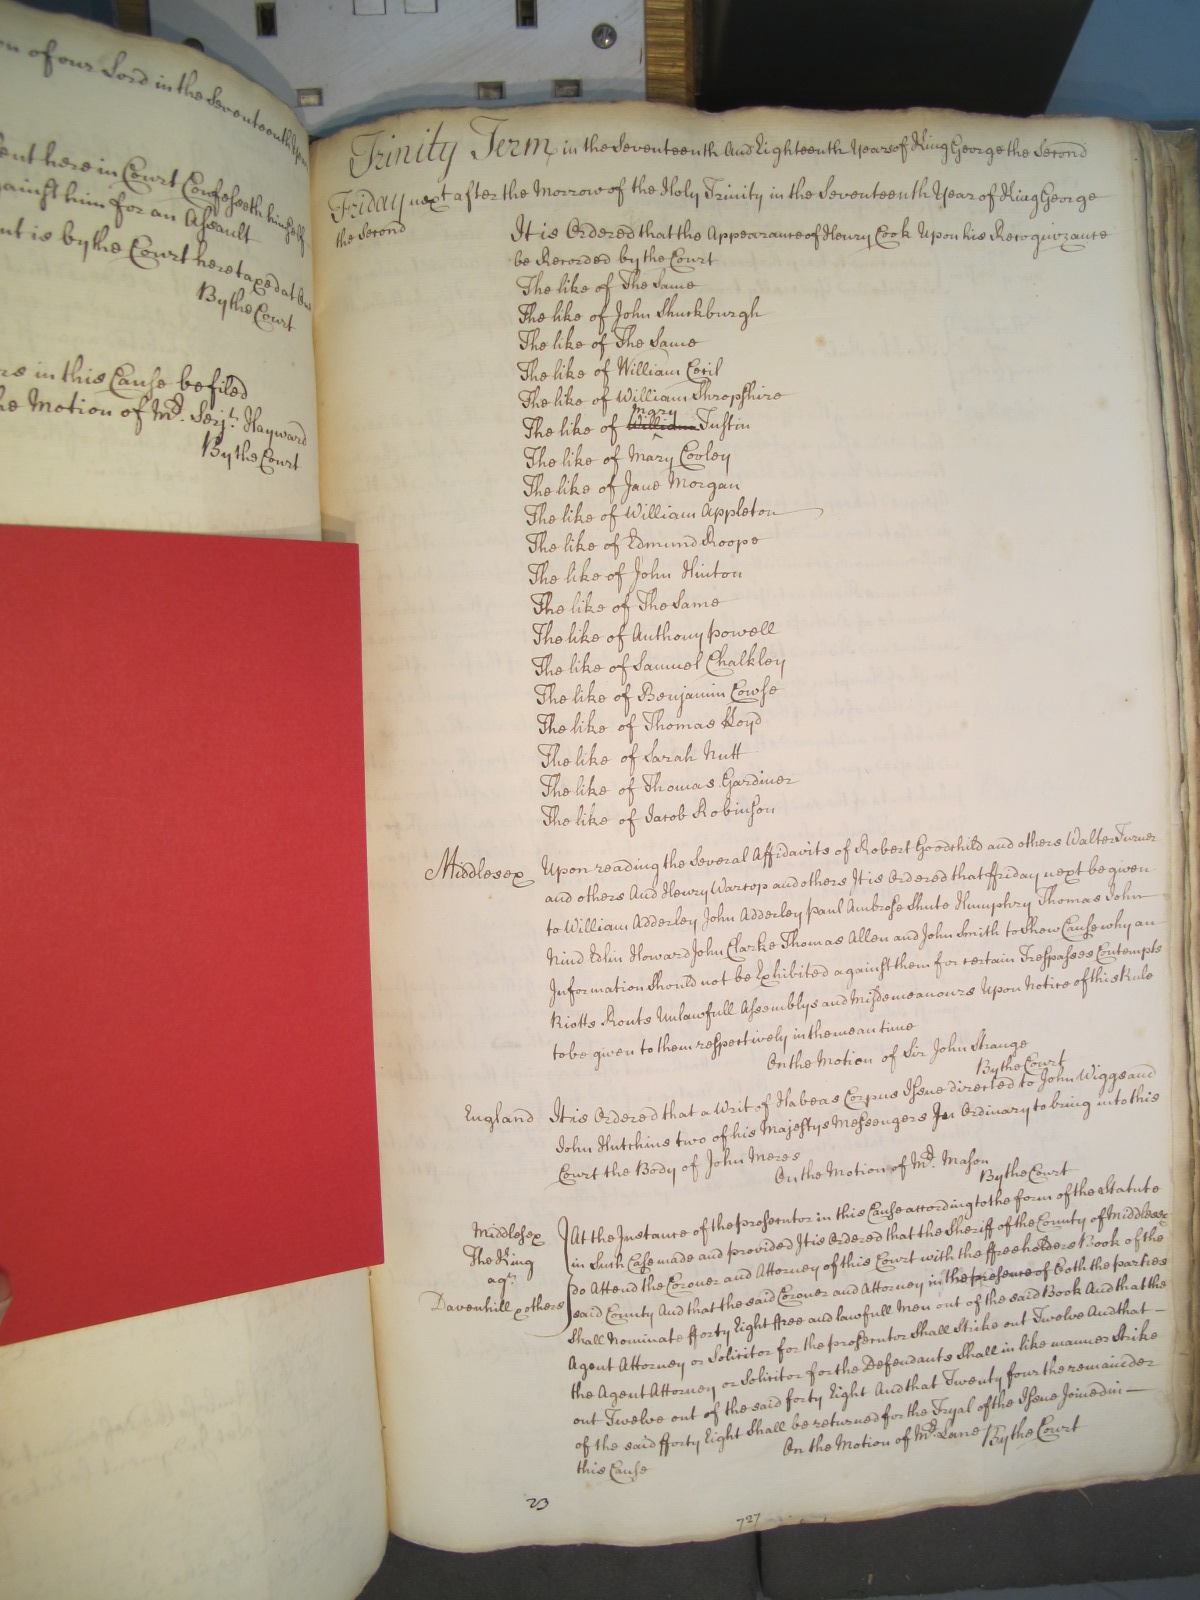 on of our Lord in the Seventeenth
ent here in Court Confesseth himself
gainst him for an Assault
nt is by the Court here taxed at One
By the Court
rs in this Cause be filed
he Motion of Mr. Serjt. Hayward
By the Court
Trinity Term in the Seventeenth And Eighteenth Years of King George the Second
Friday next after the Morrow of the Holy Trinity in the Seventeenth Year of King George
the Second
It is Ordered that the Appearance of Henry Cook Upon his Recognizance
be Recorded by the Court
The like of The Same
The like of John Shuckburgh
The like of The Same
The like of William Cecil
The like of William Shropshire
Mary
The like of William Justin
The like of Mary Cooley
The like of Jane Morgan
The like of William Appleton
The like of Edmund Roope
The like of John Hinton
The like of The Same
The like of Anthony Powell
The like of Samuel Chalkley
The like of Benjamin Cowse
The like of Thomas Lloyd
The like of Sarah Nutt
The like of Thomas Gardiner
The like of Jacob Robinson
Middlesex Upon reading the Several Affidavits of Robert Goodchild and others Walter Turner
and others And Henry Wartop and others It is Ordered that ffriday next be given
to William Adderley John Adderley Paul Ambrose Shute Humphry Thomas John
Nind Edlin Howard John Clarke Thomas Allen and John Smith to Shew Cause why an
Information Should not be Exhibited against them for certain Trespasses Contempts
Riotts Routs Unlawfull Assemblys and Misdemeanours Upon Notice of this Rule
to be given to them respectively in the mean time
On the Motion of Sir John Strange
By the Court
England It is Ordered that a Writ of Habeas Corpus Issue directed to John Wiggs and
John Hutchins two of his Majestys Messengers In Ordinary to bring into this
Court the Body of John Meres
On the Motion of Mr. Mason
By the Court
Middlesex
The King
agt.
Davenhill & others
At the Instance of the prosecutor in this Cause according to the form of the Statute
in Such Case made and provided It is Ordered that the Sheriff of the County of Middlesex
do Attend the Coroner and Attorney of this Court with the ffreeholders Book of the
said County And that the said Coroner and Attorney in the presence of Both the parties
Shall Nominate fforty Eight ffree and lawfull Men out of the said Book And that the
Agent Attorney or Solicitor for the prosecutor Shall Strike out Twelve And that
the Agent Attorney or Solicitor for the Defendants Shall in like manner Strike
out Twelve out of the said forty Eight And that Twenty four the remainder
of the said fforty Eight Shall be returned for the Tryal of the Issue Joined in
this Cause
On the Motion of Mr. Lane By the Court
23
727